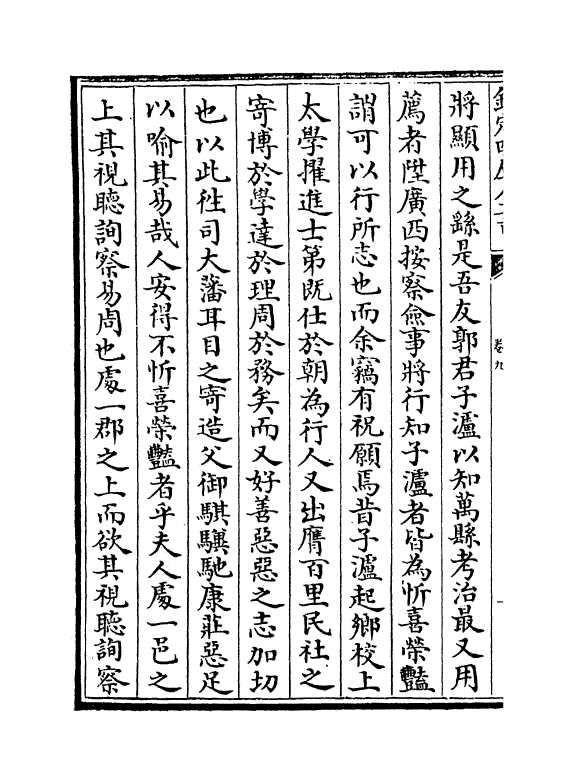 欽定四庫全書
卷九
將顯用之繇是吾友郭君子瀘以知萬縣考治最又用
薦者陞廣西按察僉事將行知子瀘者皆為忻喜榮豔
謂可以行所志也而余竊有祝願焉昔子瀘起鄉校上
太學擢進士第既仕於朝為行人又出膺百里民社之
寄博於學達於理周於務矣而又好善惡惡之志加切
也以此徃司大藩耳目之寄造父御騏驥馳康莊惡足
以喻其易哉人安得不忻喜榮豔者乎夫人處一邑之
上其視聽詢察易周也處一郡之上而欲其視聽詢察